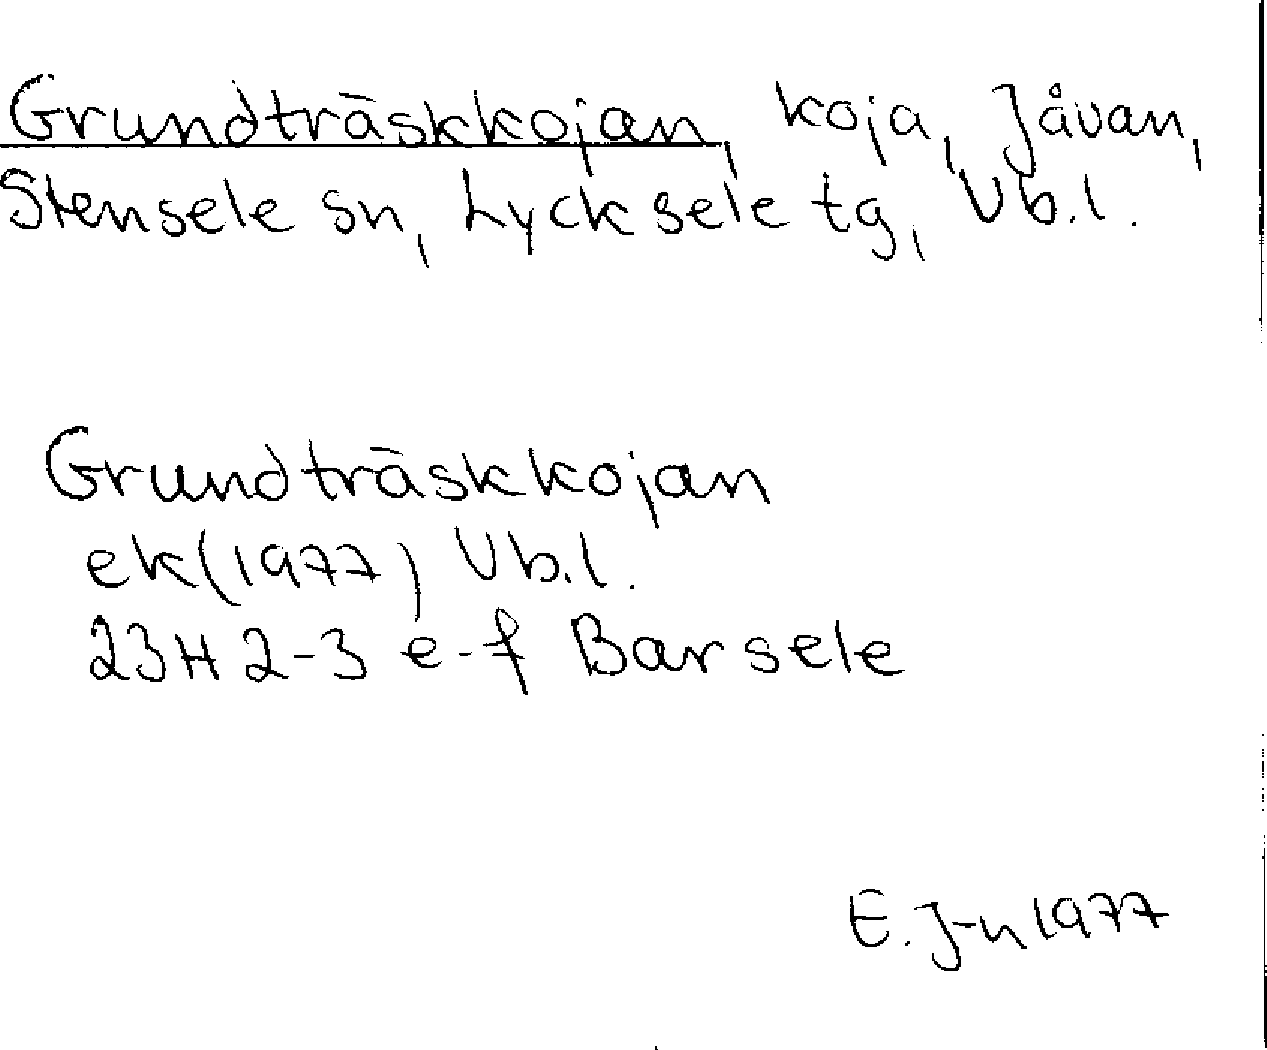 Grundträskkojan, koja, Jåvan,
Stensele sn, Lycksele tg, Vb.l.
Grundträskkojan
ek(1977) Vb.l.
23H 2-3 e-f Barsele
E.J-n 1977